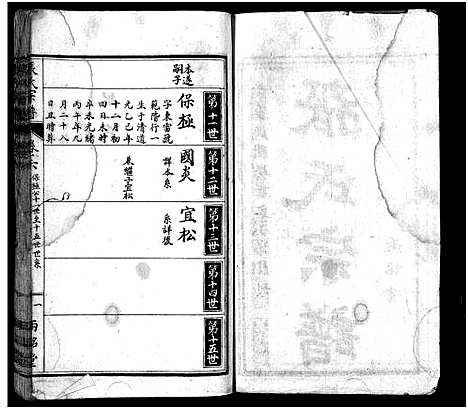 張氏宗譜
第十一世
第十二世
第十三世
第十四世
第十五世
本邊
嗣子
保極
字東當號
範階行一
生于清道
光乙巳年
十二月初
四日未時
卒未元緒
丙午年九
月二十八
日丑時葬
國炎
詳本系
承繼子宜松
宜松
系詳後
保極公十一世至十五世世系
一
西銘堂